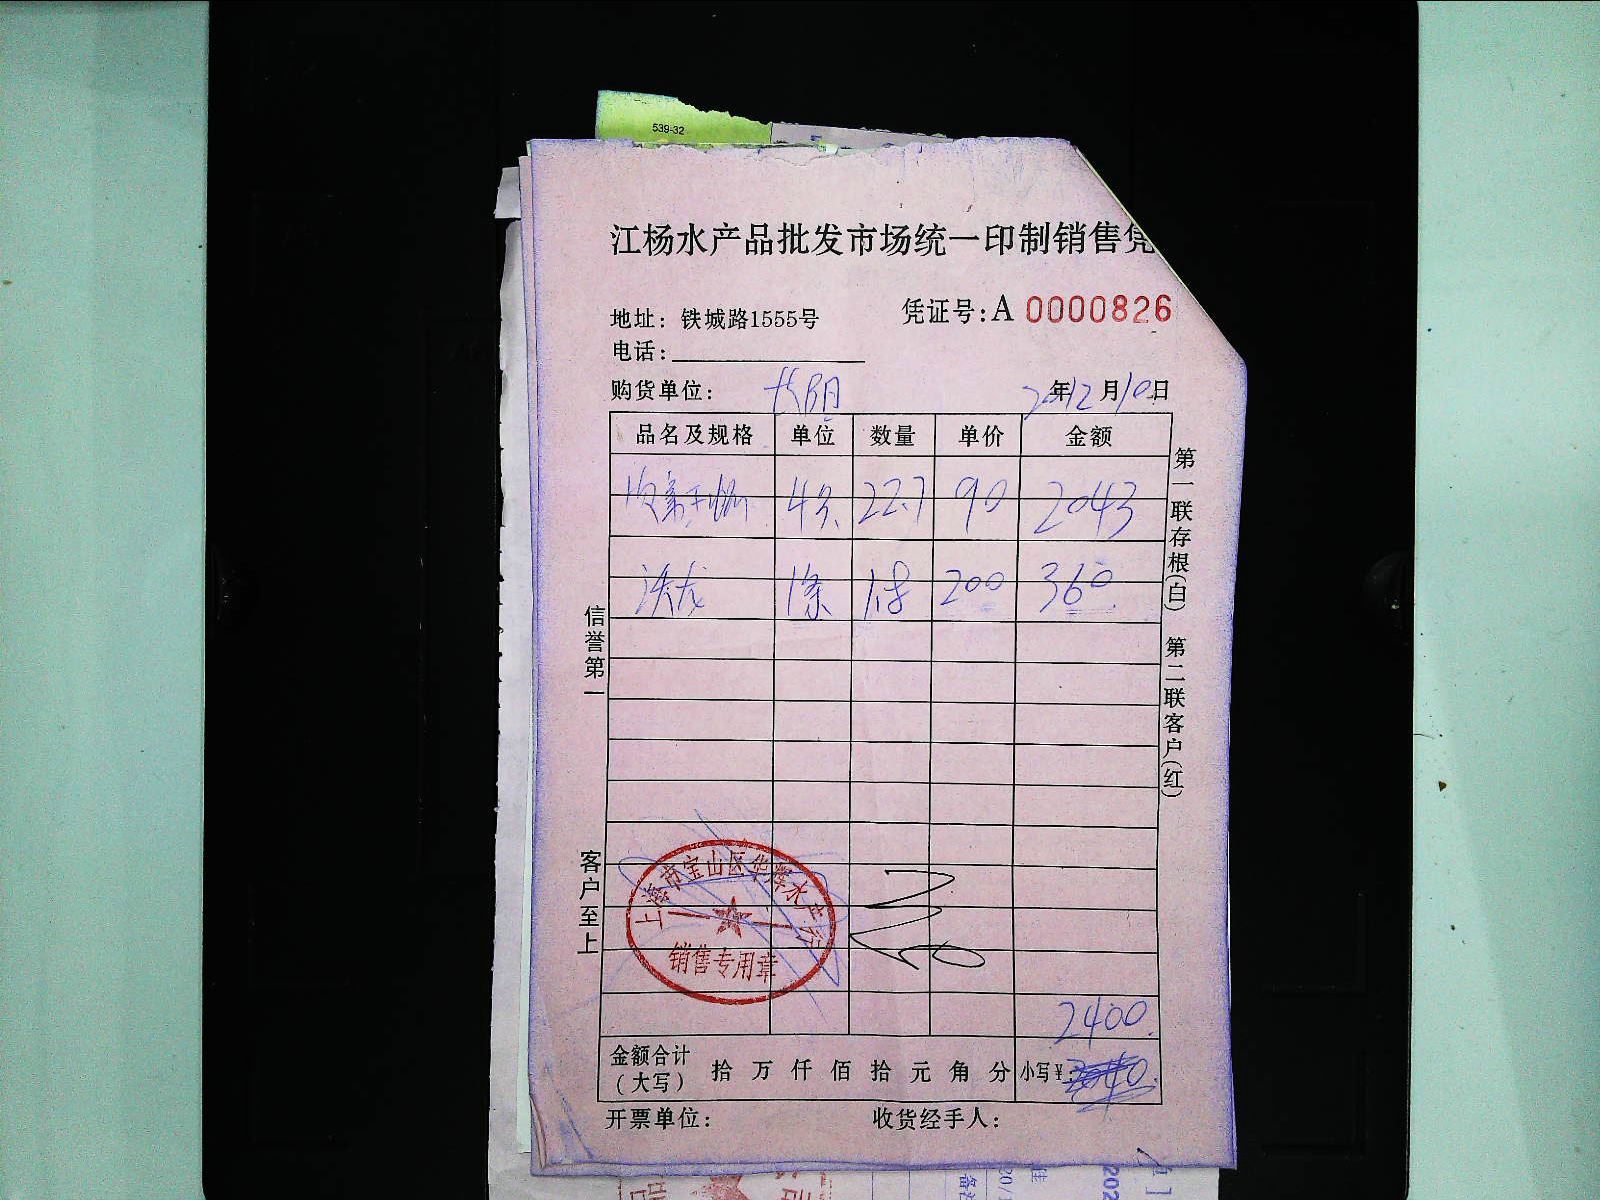 539-32
江杨水产品批发市场统一印制销售凭
地址：铁城路1555号
凭证号：A 0000826
电话：
购货单位： 长阳
20年12月10日
品名及规格 单位 数量 单价 金额
4条 22.7 90 2043
龙 1条 1.8 200 360
第一联存根（白） 第二联客户（红）
信誉第一
客户至上
上海市宝山区华辉水产行
销售专用章
2400.
金额合计（大写） 拾 万 仟 佰 拾 元 角 分 小写¥：
开票单位： 收货经手人：